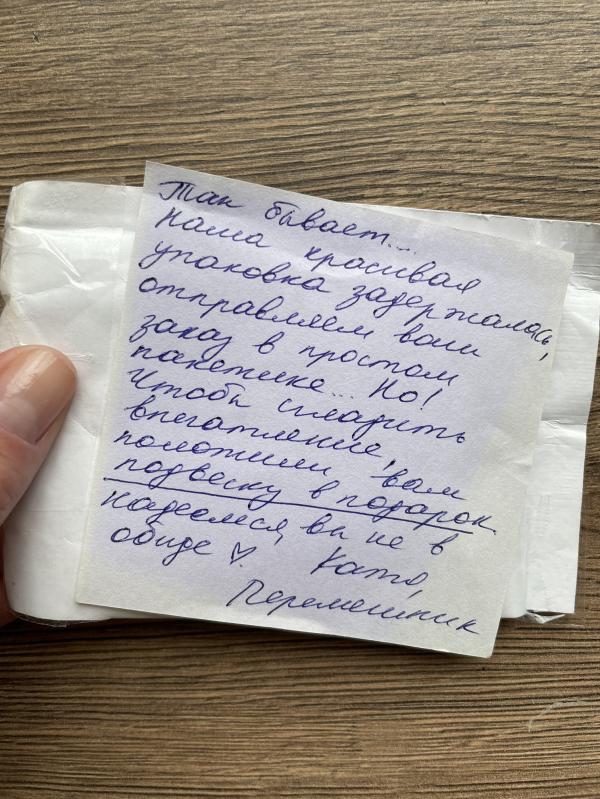 Так бывает...
Наша красивая
упаковка задержалась,
отправляем ваш
заказ в простом
пакетике... Но!
Чтобы сгладить
впечатление,
положили вам
подвеску в подарок
надеемся, вы не в
обиде ♡. Катя,
Перемешник